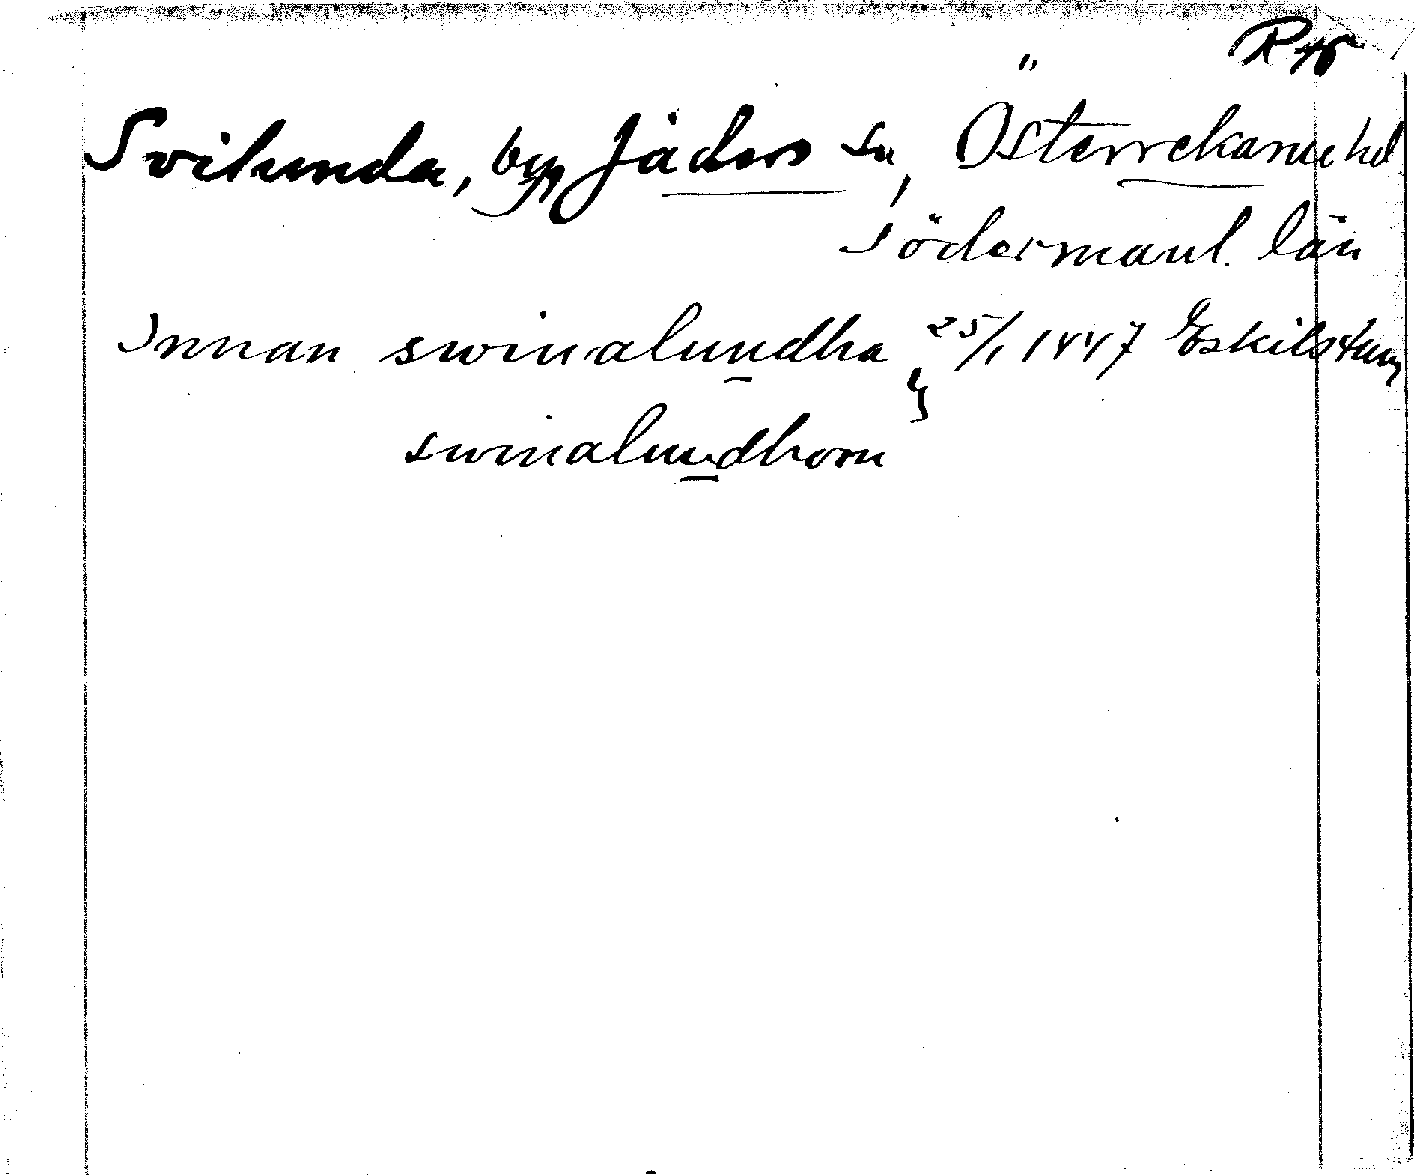 Svilunda, by, Jäders sn, Österrekarne hd
Södermanl. län
Innan swinalundha 25/1 1447 Eskilstuna
swinalundhom